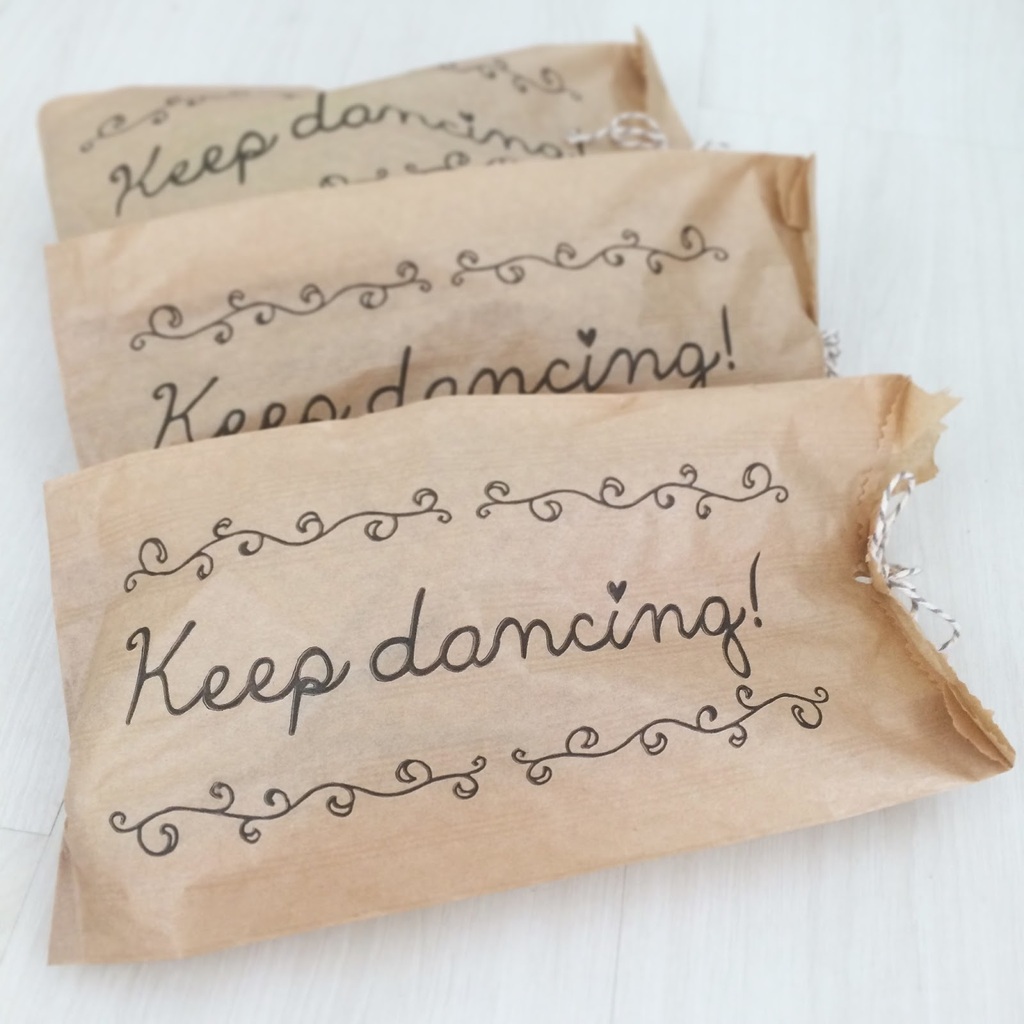 Keep dancing!
Keep dancing!
Keep dancing!